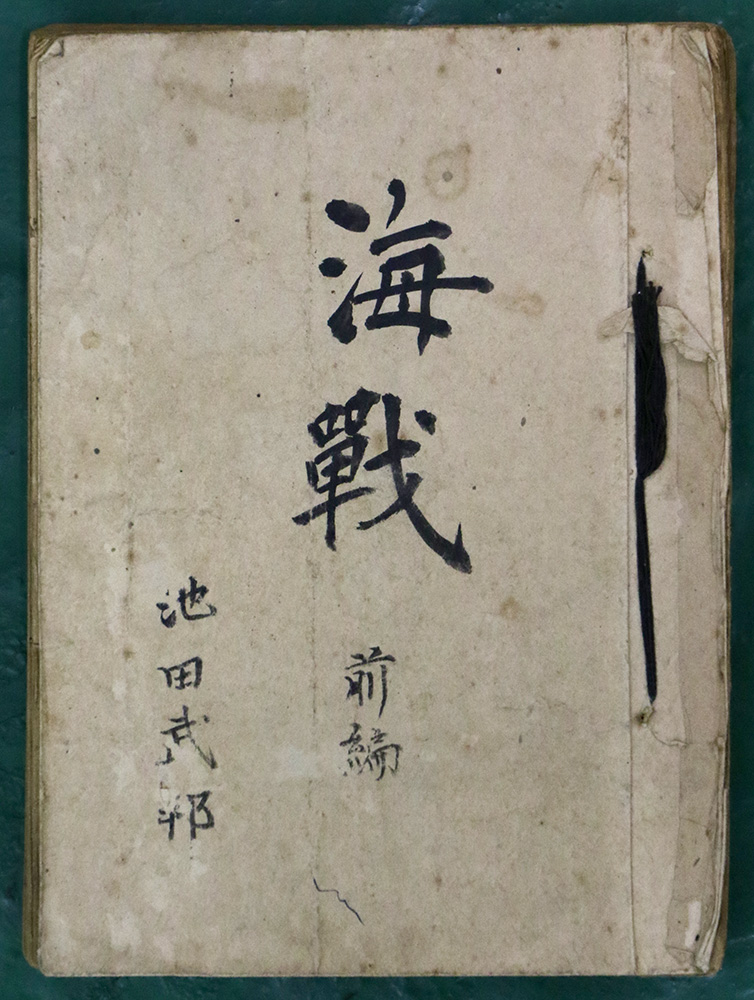 海戰
前編
池田武邦